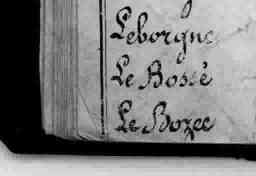 Leborgne
Le Bossé
Le Bozec